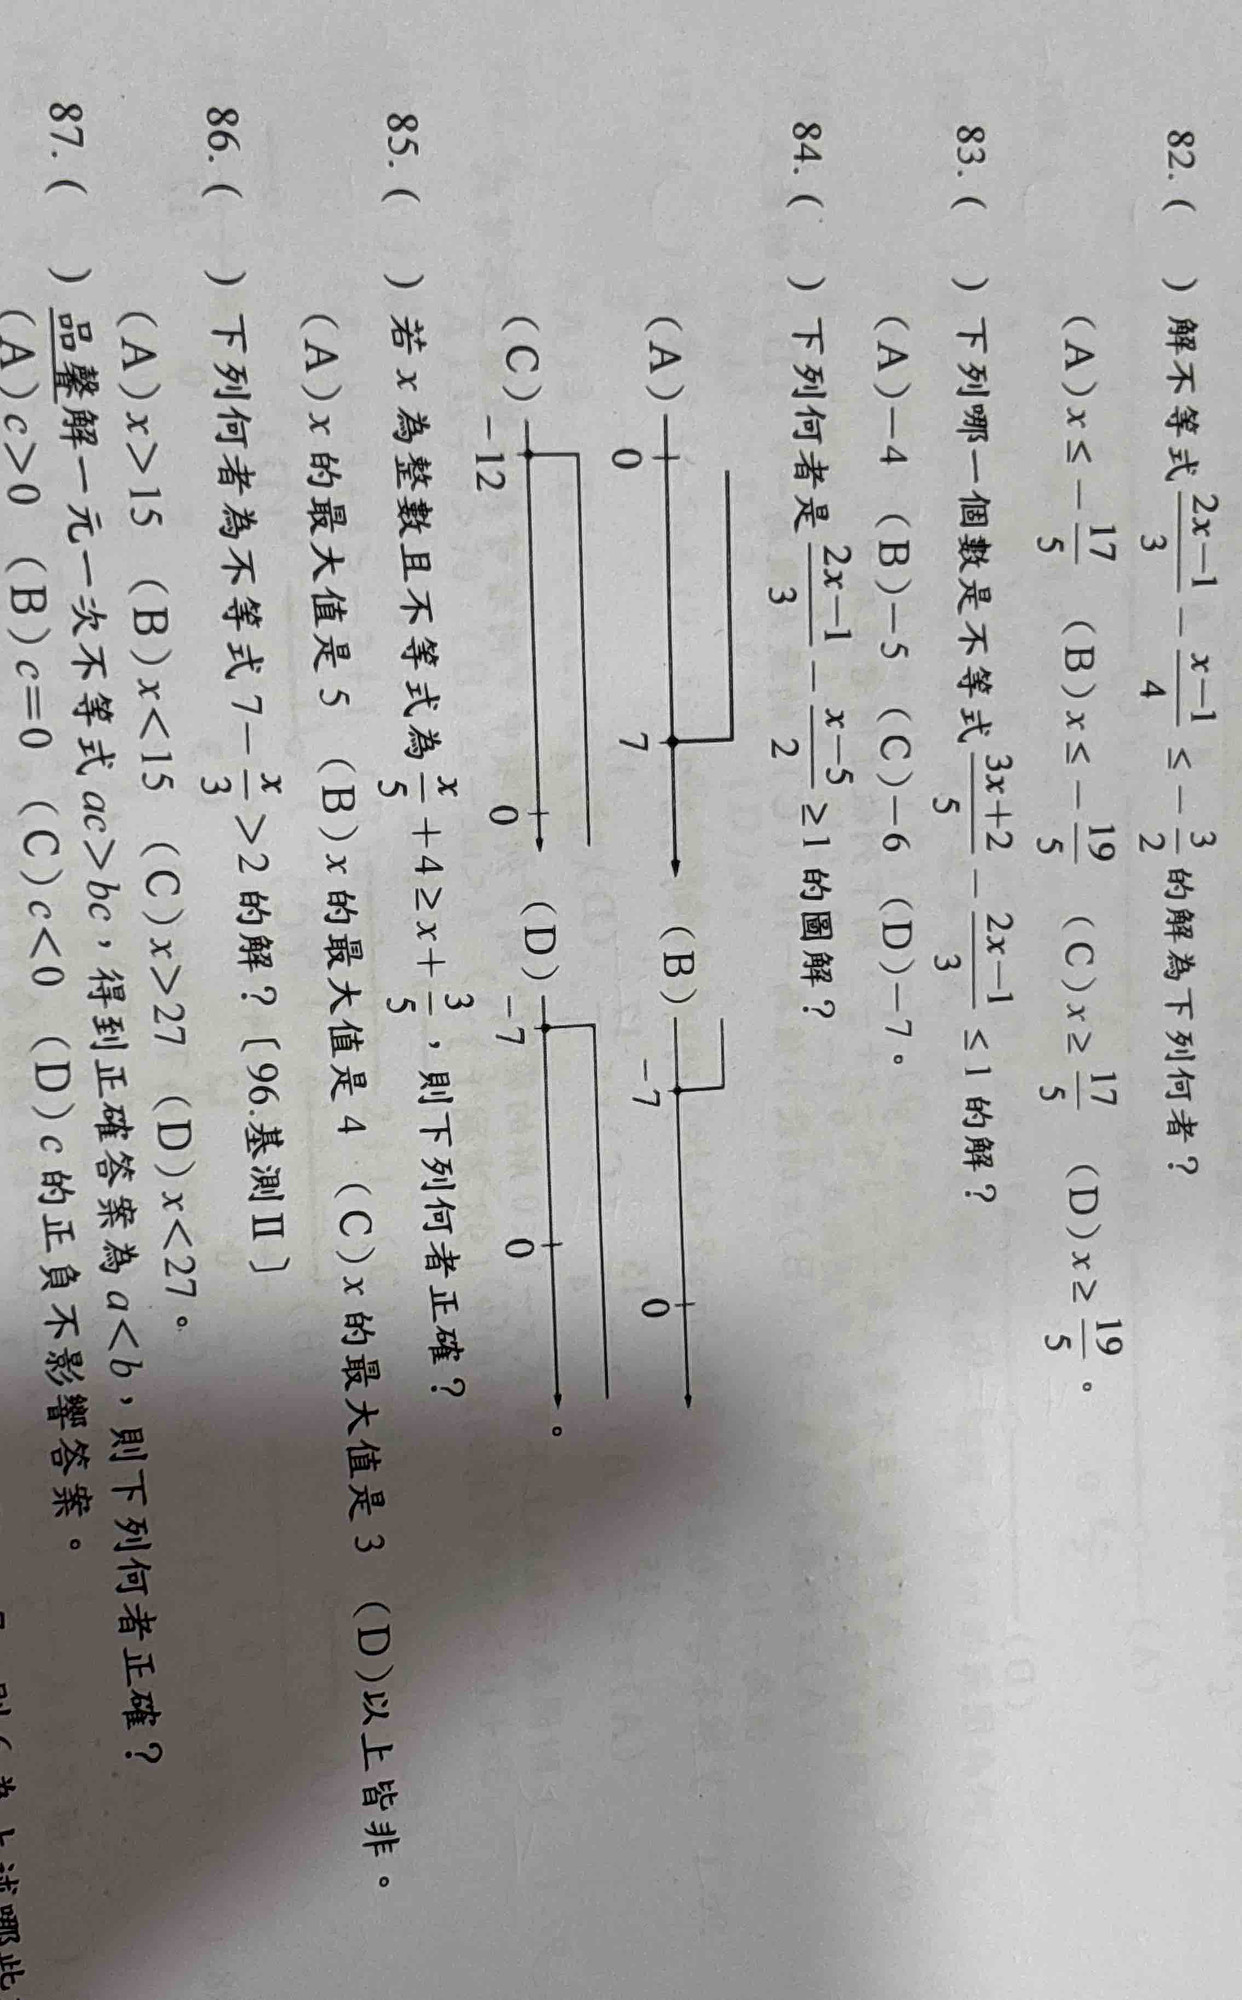 82.(　)解不等式 (2x−1)/3 − (x−1)/4 ≤ −3/2 的解為下列何者？
(A) x ≤ −17/5 (B) x ≤ −19/5 (C) x ≥ 17/5 (D) x ≥ 19/5。
83.(　)下列哪一個數是不等式 (3x+2)/5 − (2x−1)/3 ≤ 1 的解？
(A)−4 (B)−5 (C)−6 (D)−7。
84.(　)下列何者是 (2x−1)/3 − (x−5)/2 ≥ 1 的圖解？
(A) 0 7 (B) −7 0
(C) −12 0 (D) −7 0 。
85.(　)若 x 為整數且不等式為 x/5 + 4 ≥ x + 3/5，則下列何者正確？
(A) x 的最大值是 5 (B) x 的最大值是 4 (C) x 的最大值是 3 (D)以上皆非。
86.(　)下列何者為不等式 7 − x/3 > 2 的解？〔96.基測Ⅱ〕
(A) x > 15 (B) x < 15 (C) x > 27 (D) x < 27。
87.(　)品馨解一元一次不等式 ac > bc，得到正確答案為 a < b，則下列何者正確？
(A) c > 0 (B) c = 0 (C) c < 0 (D) c 的正負不影響答案。